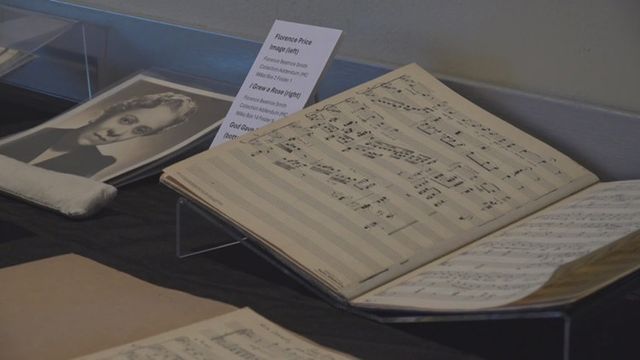 Florence Price
Image (left)
Florence Beatrice Smith
Collection Addendum (MC
988a) Box 2 Folder 1
I Grew a Rose (right)
Florence Beatrice Smith
Collection Addendum (MC
988a) Box 14 Folder
God Gave